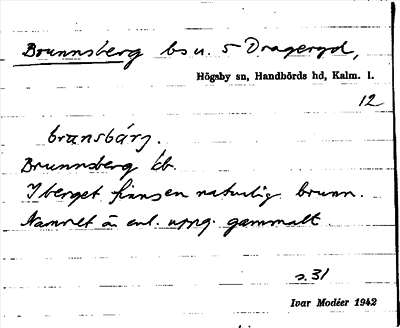 Brunnsberg bs u. 5 Drageryd,
Högsby sn, Handbörds hd, Kalm. l.
12
bransbárj.
Brunnsberg kb.
I berget finns en naturlig brunn.
Namnet är enl. uppg. gammalt
s. 31
Ivar Modéer 1942